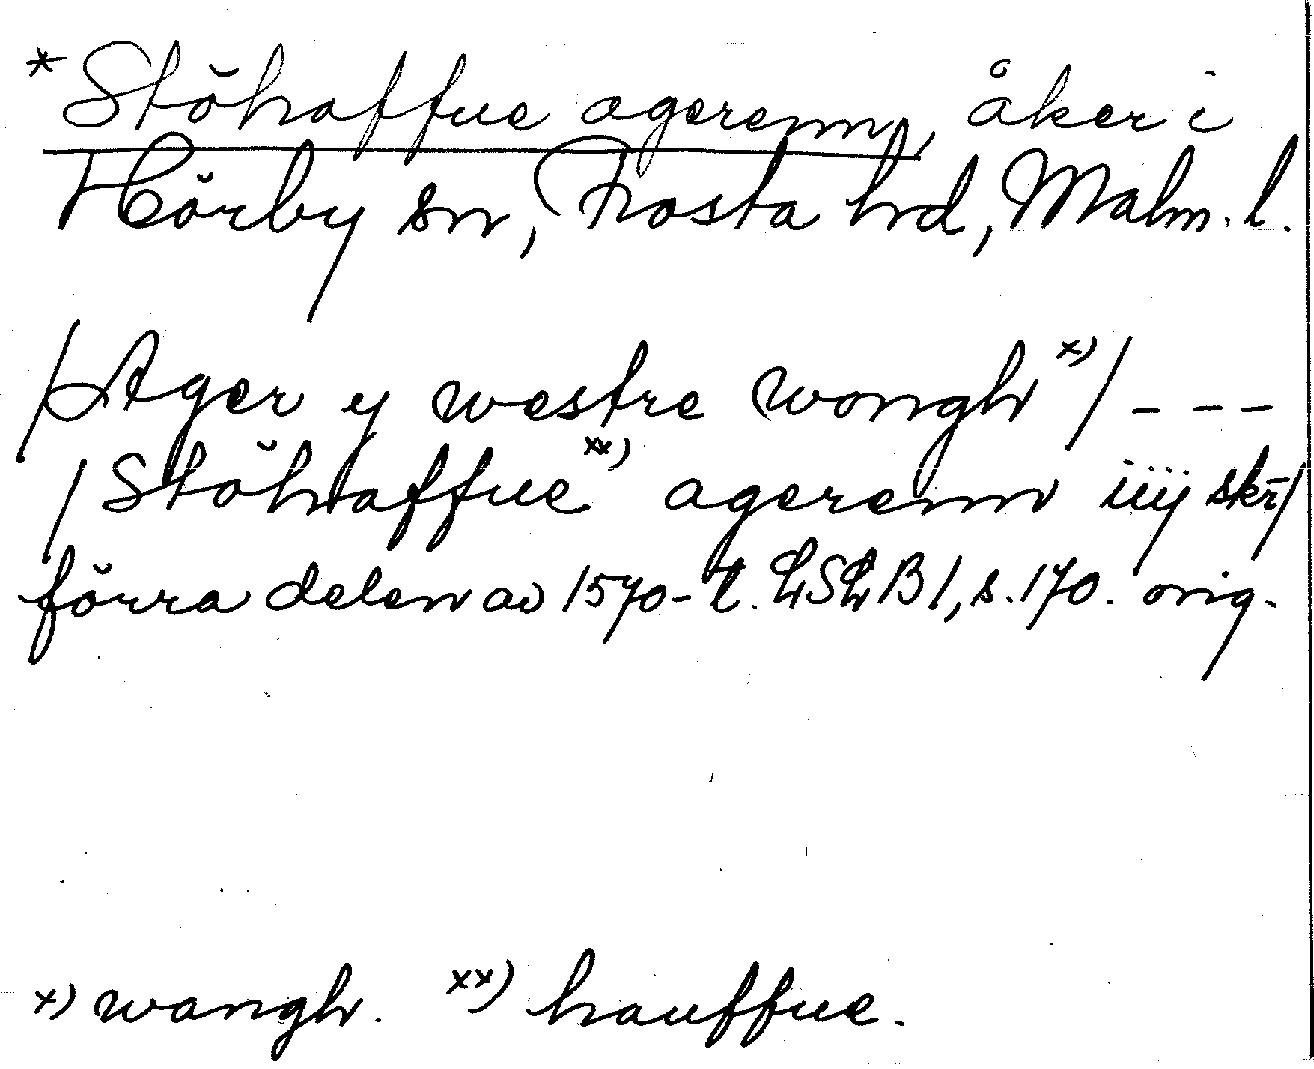 *Stöhaffue agerenn, åker i
Hörby sn, Frosta hd, Malm. l.
/Ager y westre wongh x)/ - - -
/Stöhaffue xx) agerenn iiij skr/
förra delen av 1570-t. LSLB1, s. 170. orig.
x) wangh. xx) hauffue.